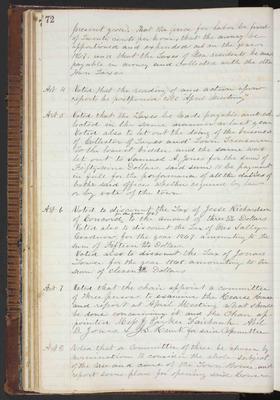 72
present year. That the price for labor be fixed
of Twenty cents per hour, that the money be
apportioned and expended as in the year
1867, and that the Taxes of Non residents be made
payable in money and collected with the other
Town Taxes.
Art 4 Voted, that the reading of and action upon
reports be postponed till April Meeting
Art 5 Voted that the Taxes be made payable and col-
lected in the same manner as last year
Voted also to let out the doing of the business
of Collector of Taxes and Town Treasurer
to the lowest bidder, and the same was
let out to Samuel Jones for the sum of
Fifty-nine Dollars, said sum to be payment
in full for the performance of all the duties of
both said offices whether required by law
or by vote of the town.
Art. 6 Voted to discount the Tax of Jesse Richardson
of Concord, to the amount of three Dollars
Voted also to discount the Tax of Mrs Sally
for the year 1867 amounting to the
sum of Fifteen Dollars
Voted also to discount the Tax of
for the year amounting to the
sum of eleven Dollars
Art. 7 Voted that the chair appoint a committee
of three persons to examine the Hearse House
and report at April Meeting what should
be done concerning it, and the Chair ap-
pointed
said Committee
Art 8 Voted that a Committee of three be chosen by
nomination to consider the whole subject
of the use and care of the Town House, and
report some plan for opening said house